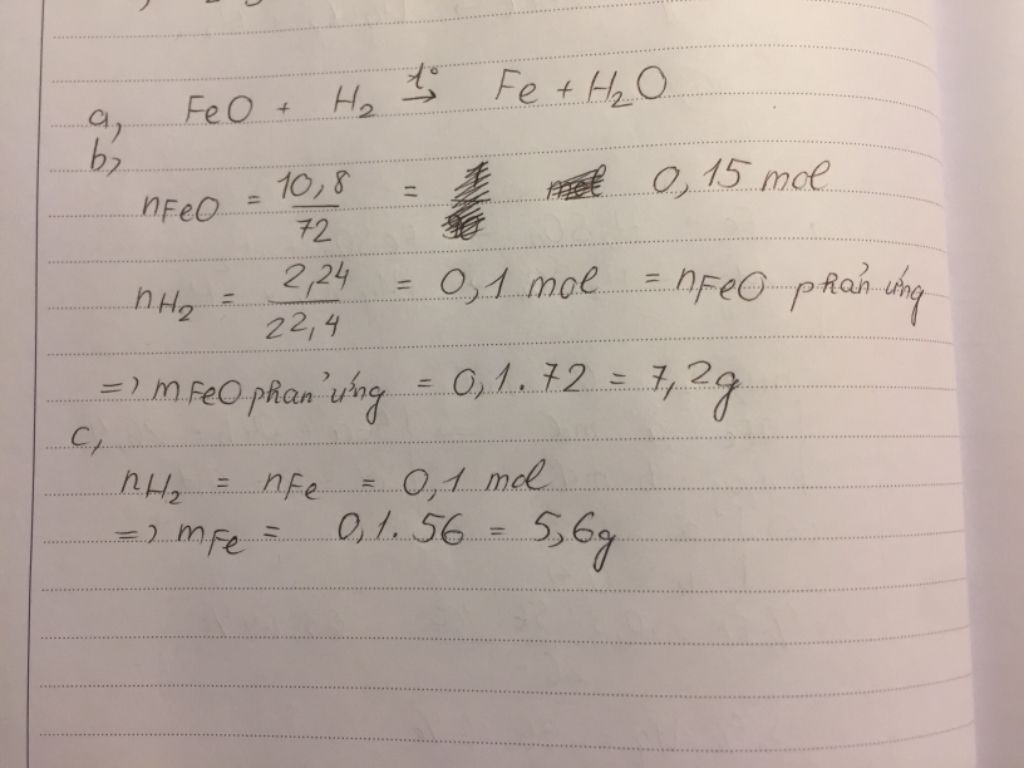 a, FeO + H₂ →t° Fe + H₂O
b,
nFeO = 10,8/72 = 0,15 mol
nH₂ = 2,24/22,4 = 0,1 mol = nFeO phản ứng
=> mFeO phản ứng = 0,1.72 = 7,2g
c,
nH₂ = nFe = 0,1 mol
=> mFe = 0,1.56 = 5,6g